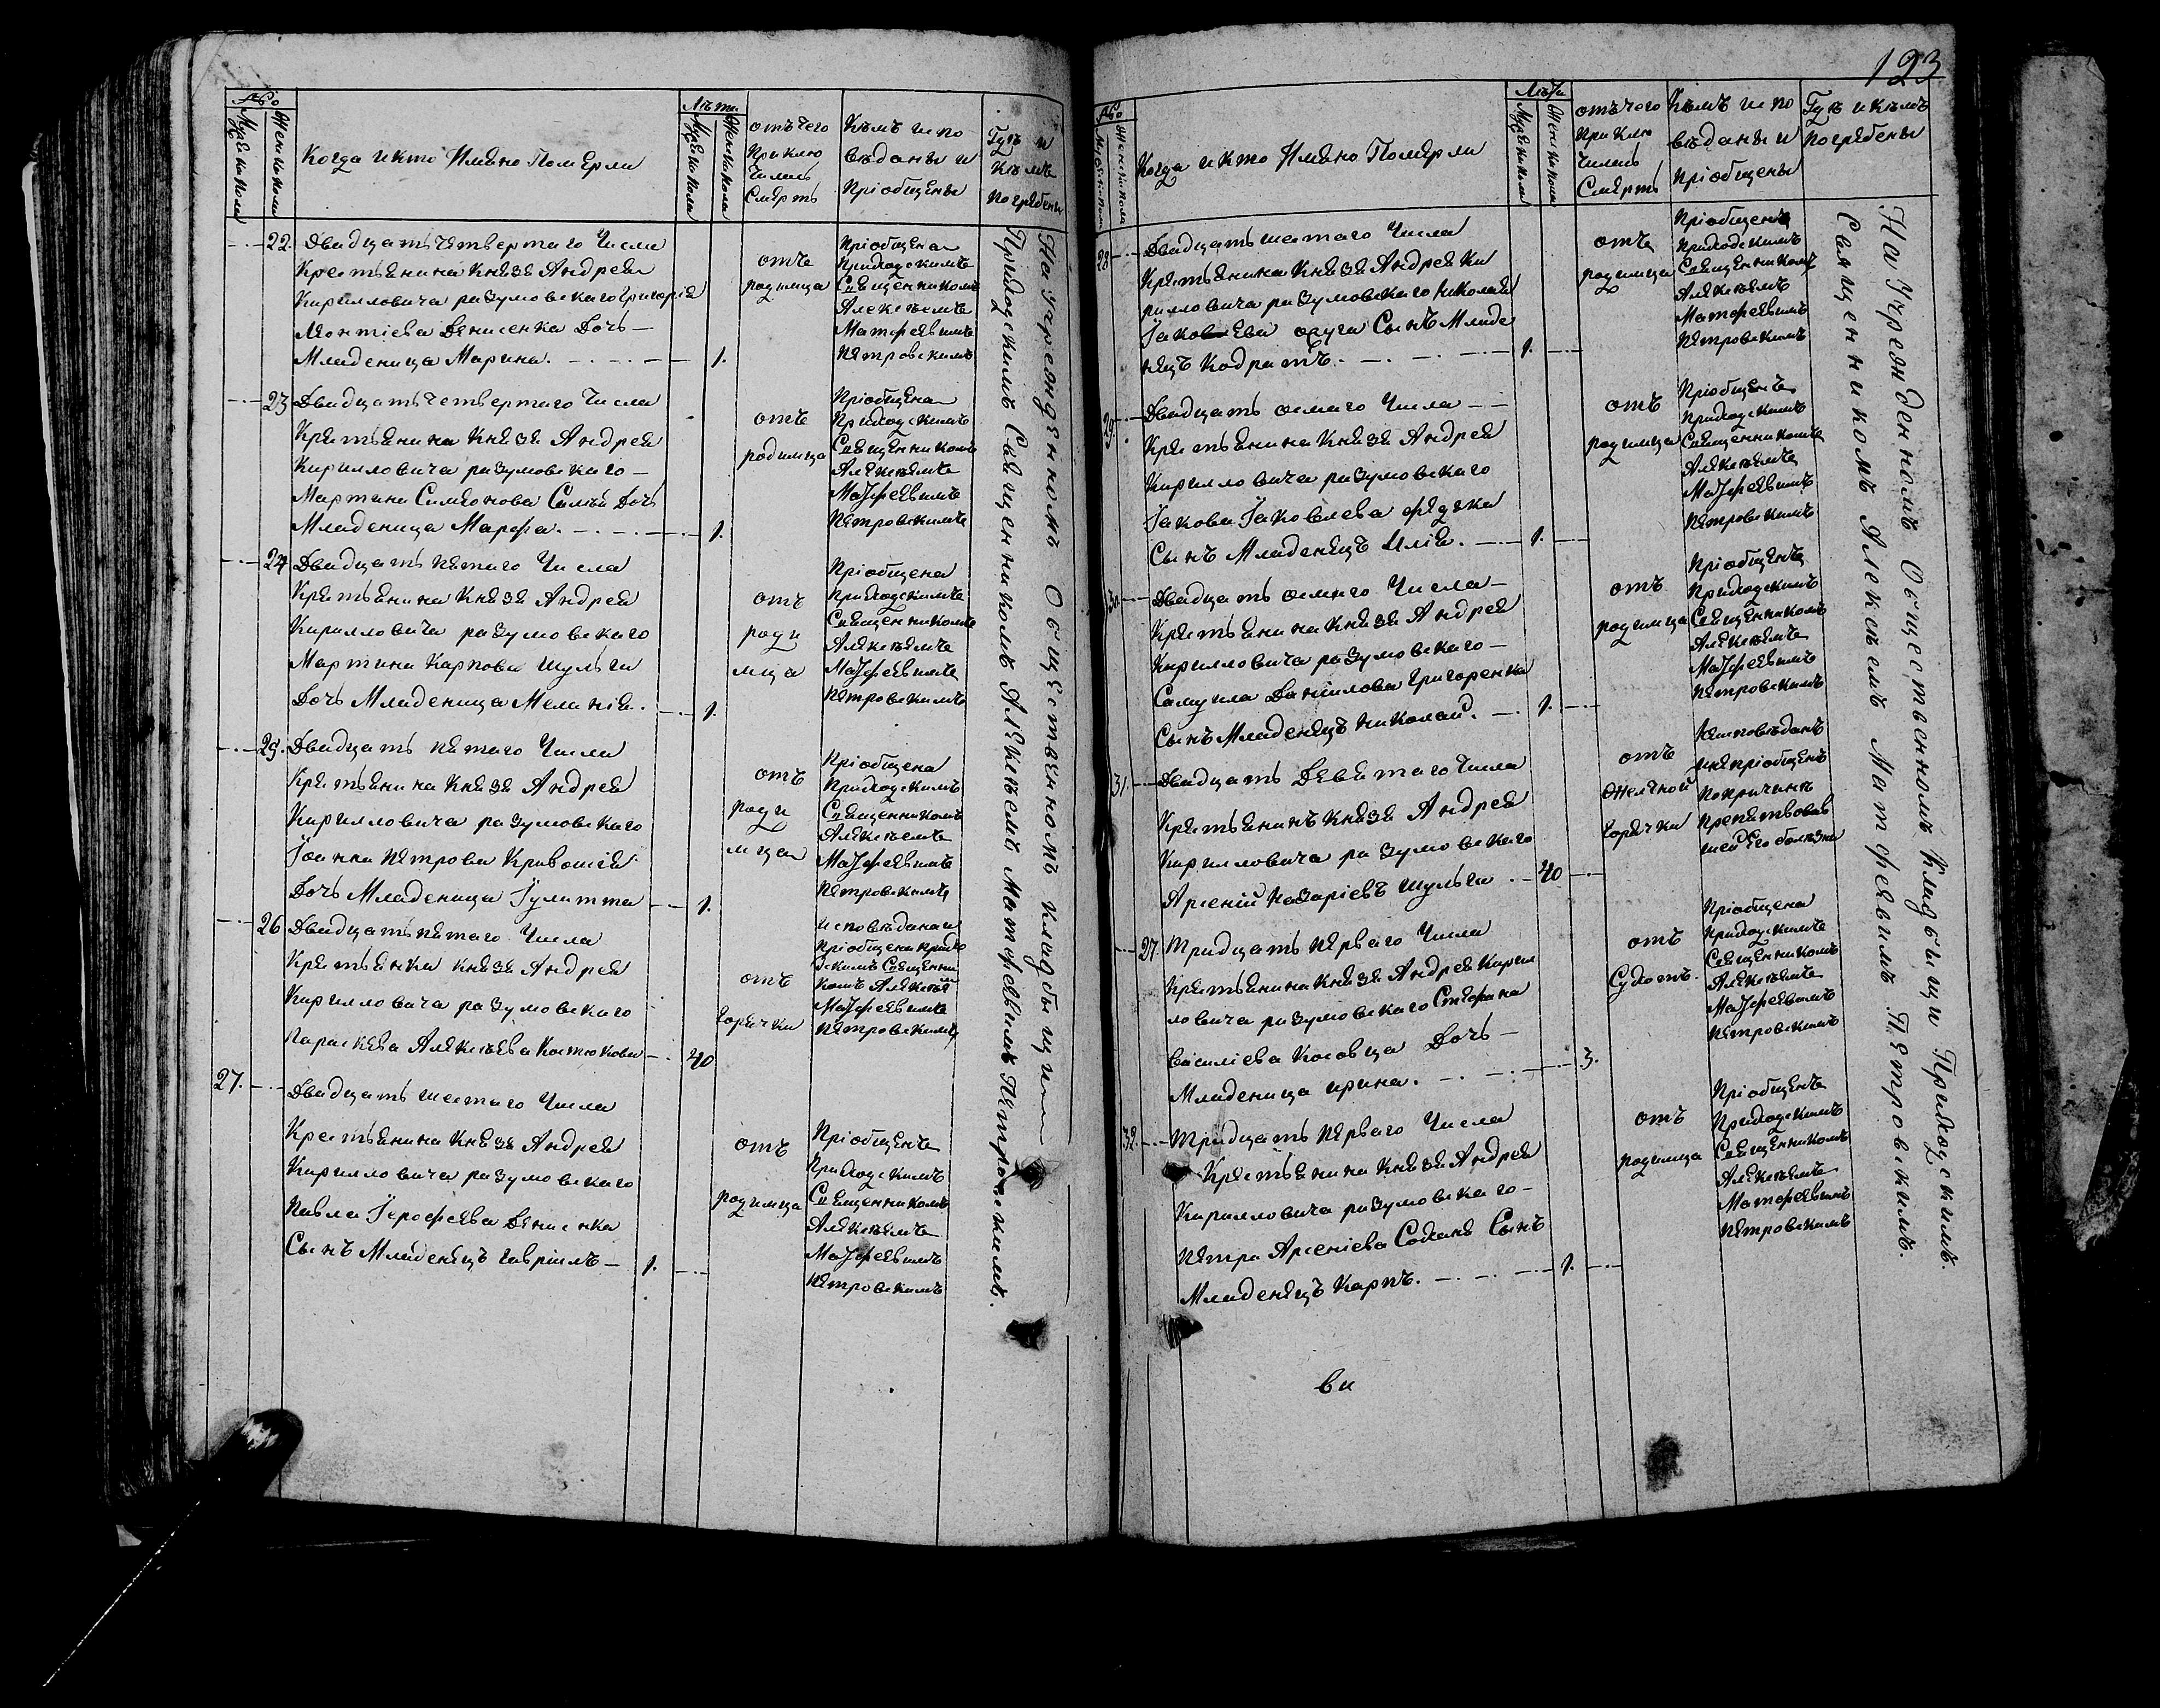 123
№
Мужеска пола
Женска пола
Когда и кто Имяно Померли
Лѣта
Мужеска пола
Женска пола
отъ чего
Приклю
чилась
Смерть
Кѣмъ испо
вѣданы и
пріобщены
Гдѣ и
Кѣмъ
погребены
22. Двадцать четвертаго Числа
Крестьянина Князя Андрея
Кирилловича разумовскаго Григорія
Леонтіева Денисенка Дочь
Младеница Марина. 1.
отъ
родимца
Пріобщена
Приходскимъ
Священникомъ
Алексѣемъ
Матфеевымъ
Петровскимъ
23 Двадцать четвертаго Числа
Крестьянина Князя Андрея
Кирилловича разумовскаго
Мартина Симеонова Дочь
Младеница Марфа. 1.
отъ
родимца
Пріобщена
Приходскимъ
Священникомъ
Алексѣемъ
Матфеевымъ
Петровскимъ
24 Двадцать пятаго Числа
Крестьянина Князя Андрея
Кирилловича разумовскаго
Мартина Карпова шульги
Дочь Младеница Меланія. 1.
отъ
роди
мца
Пріобщена
Приходскимъ
Священникомъ
Алексѣемъ
Матфеевымъ
Петровскимъ
25. Двадцать пятаго Числа
Крестьянина Князя Андрея
Кирилловича разумовскаго
Іоанна Петрова Кривошіи
Дочь Младеница Іулитта 1.
отъ
роди
мца
Пріобщена
Приходскимъ
Священникомъ
Алексѣемъ
Матфеевымъ
Петровскимъ
26 Двадцать пятаго Числа
Крестьянка князя Андрея
Кирилловича разумовскаго
Параскева Алексѣева Костюкова 40
отъ
горячки
исповѣдана и
Пріобщена прихо
дскимъ Священни
комъ Алексѣем
Матфеевымъ
Петровскимъ
27. Двадцать шестаго Числа
Крестьянина Князя Андрея
Кирилловича разумовскаго
Павла Іерофеева Денисенка
Сынъ Младенецъ Гавріилъ 1.
отъ
родимца
Пріобщенъ
Приходскимъ
Священникомъ
Алексѣемъ
Матфеевымъ
Петровскимъ
На Учрежденномъ Общественномъ кладбищи
Приходскимъ Священникомъ Алексѣемъ Матфеевымъ Петровскимъ.
№
Мужеска пола
Женска пола
Когда и кто Имяно Померли
Лѣта
Мужеска пола
Женска пола
отъ чего
приклю
чилась
Смерть
Кѣмъ испо
вѣданы и
пріобщены
Гдѣ и кѣмъ
погребены
28 Двадцать шестаго Числа
Крестьянина Князя Андрея Ки
рилловича разумовскаго Николая
Іаковлева Сынъ Младе
нецъ Кодратъ. 1.
отъ
родимца
Пріобщенъ
Приходскимъ
Священникомъ
Алексѣемъ
Матфеевымъ
Петровскимъ
29. Двадцать осмаго Числа
Крестьянина Князя Андрея
Кирилловича разумовскаго
Іакова Іаковлева
Сынъ Младенецъ Илія. 1.
отъ
родимца
Пріобщенъ
Приходскимъ
Священникомъ
Алексѣемъ
Матфеевымъ
Петровскимъ
30 Двадцать осмаго Числа
Крестьянина Князя Андрея
Кирилловича разумовскаго
Самуила Даниилова Григоренка
Сынъ Младенецъ Николай. 1.
отъ
родимца
Пріобщенъ
Приходскимъ
Священникомъ
Алексѣемъ
Матфеевымъ
Петровскимъ
31. Двадцать Девятаго Числа
Крестьянинъ Князя Андрея
Кирилловича разумовскаго
Арсеній Назаріевъ шульга 40
отъ
желчной
горячки
Неисповѣданъ
инепріобщенъ
по причинѣ
препятствовав
шей Его болѣзни
27. Тридцать перваго Числа
Крестьянина Князя Андрея Кирил
ловича разумовскаго Стефана
Василіева Косовца Дочь
Младеница ирина. 3.
отъ
Сухотъ.
Пріобщена
Приходскимъ
Священникомъ
Алексѣемъ
Матфеевымъ
Петровскимъ
32. Тридцать перваго Числа
Крестьянина Князя Андрея
Кирилловича разумовскаго
Петра Арсеніева Сохань Сынъ
Младенецъ Карпъ. 1.
отъ
родимца
Пріобщенъ
Приходскимъ
Священникомъ
Алексѣемъ
Матфеевымъ
Петровскимъ
На Учрежденномъ Общественномъ Кладбищи Приходскимъ
Священникомъ Алексѣемъ Матфеевымъ Петровскимъ.